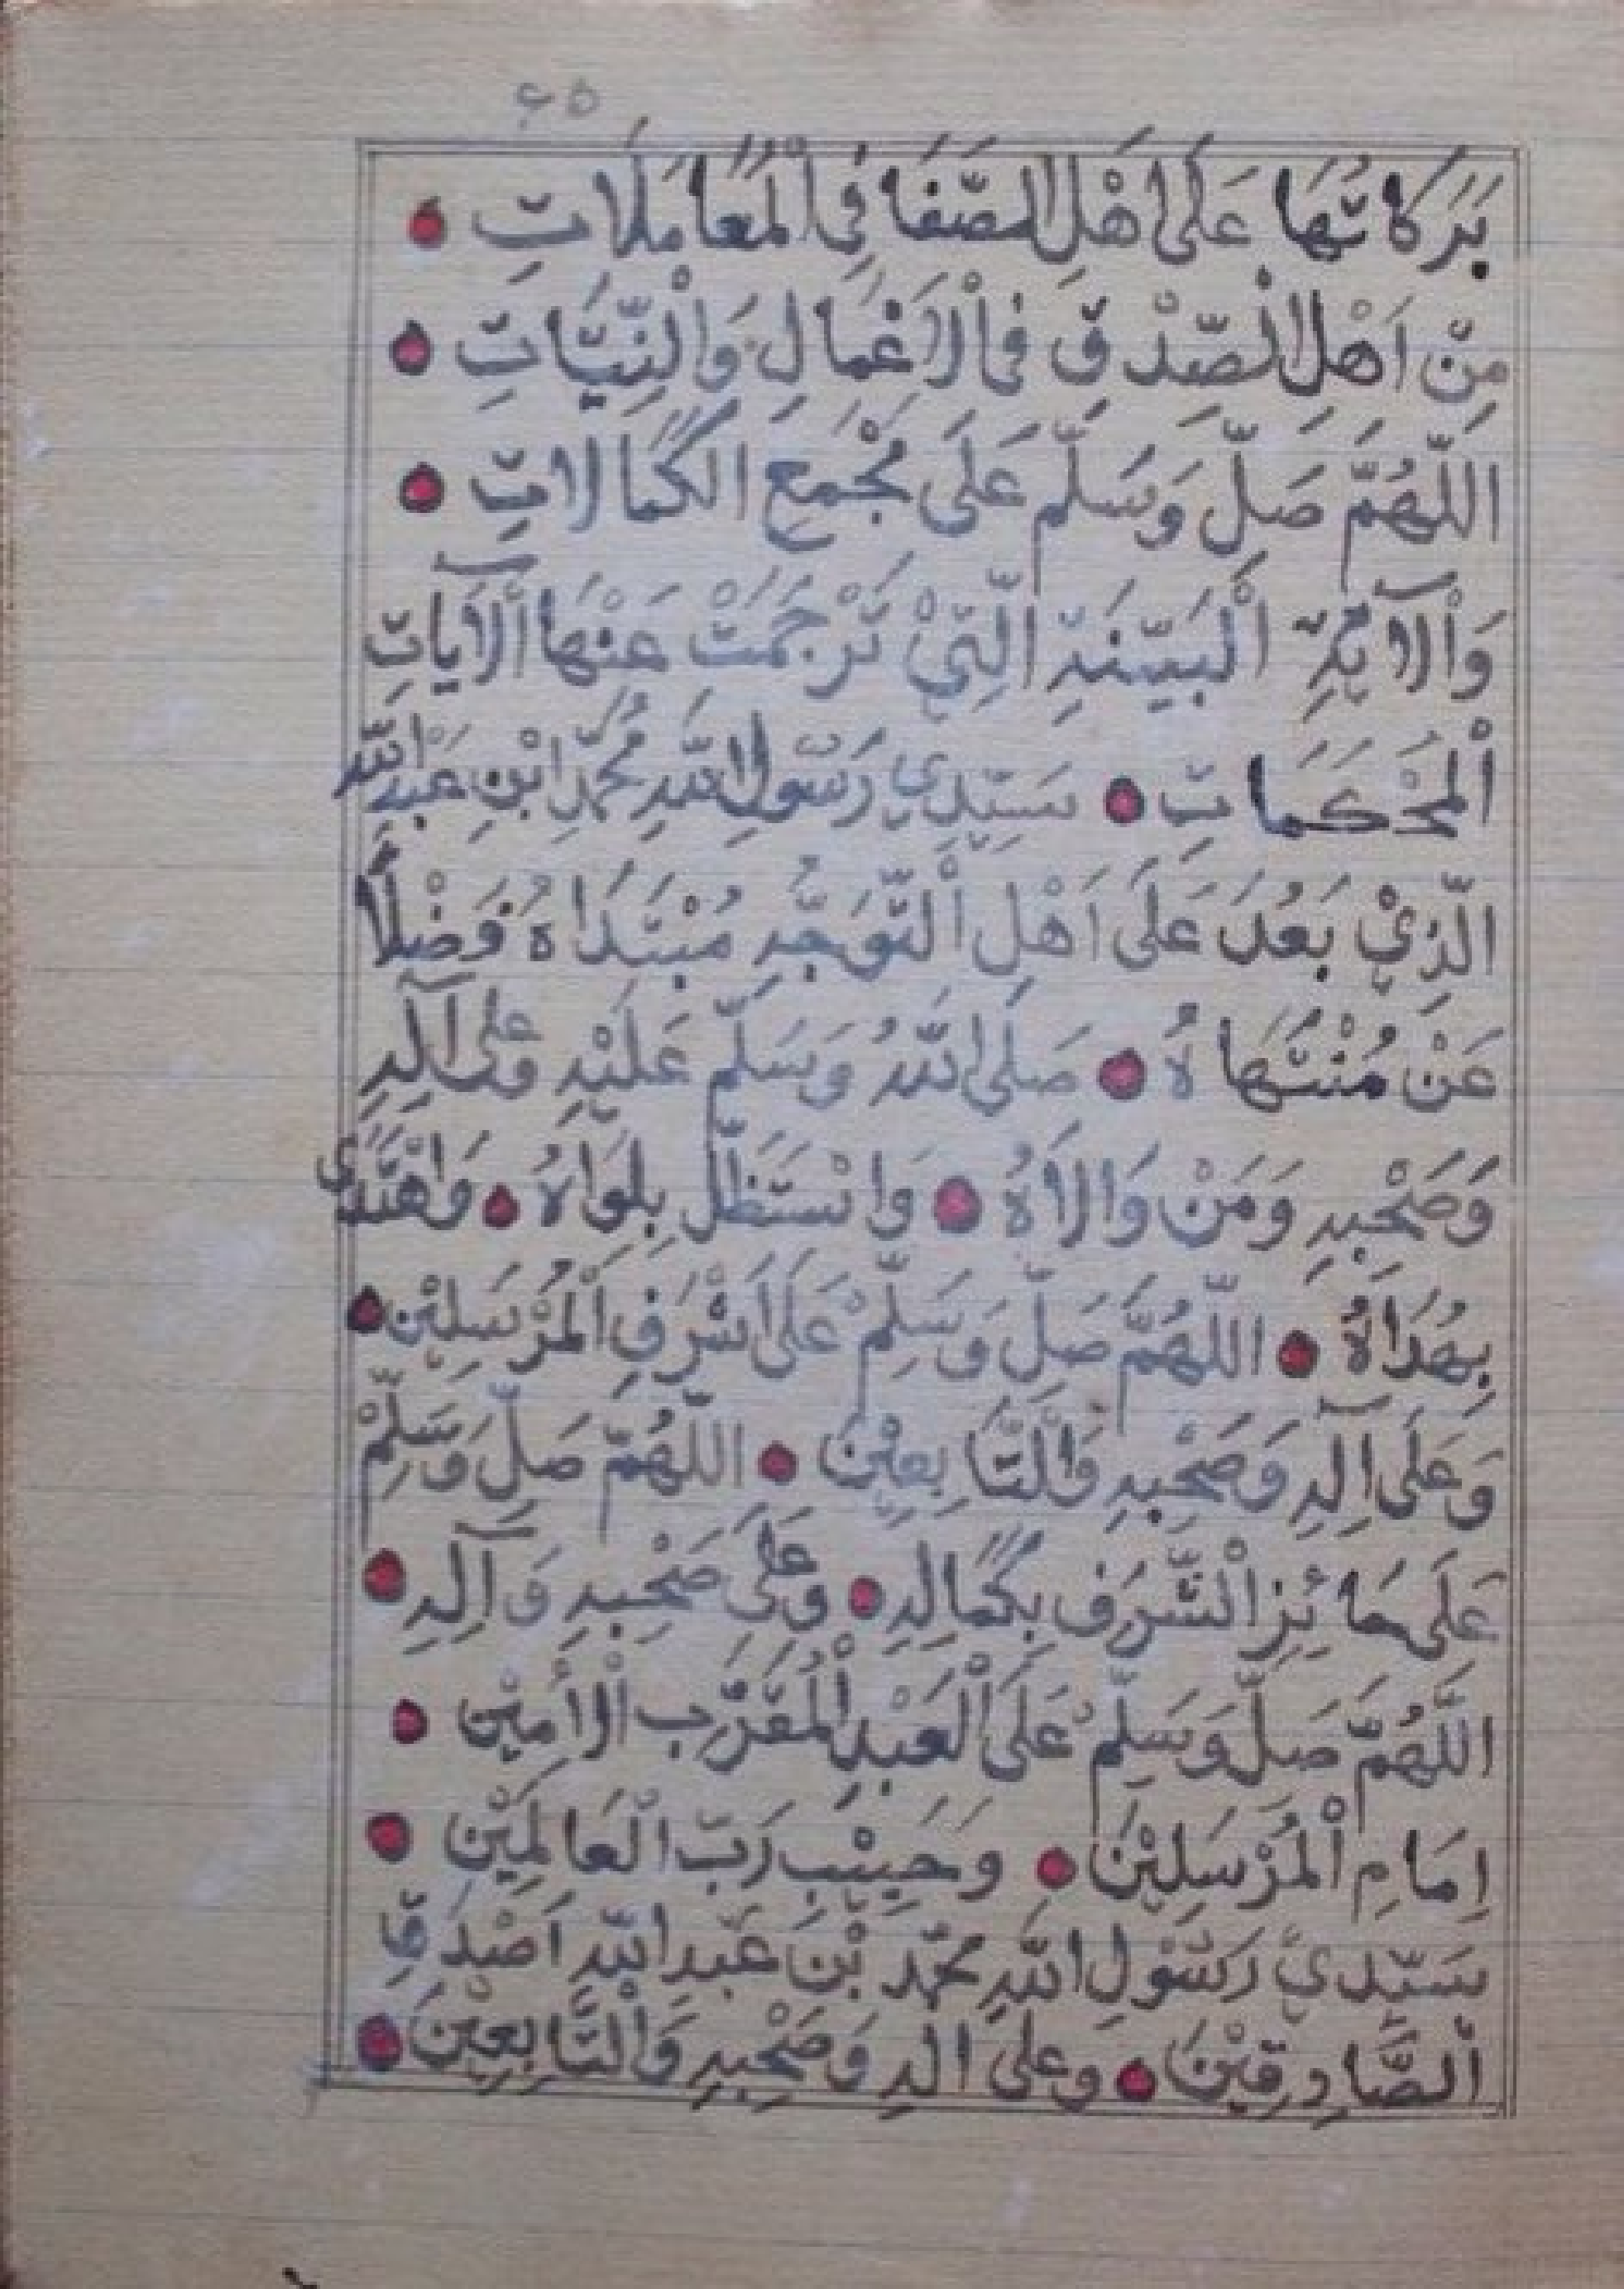 ٤٥
بَرَكَاتُهَا عَلَى اَهْلِ الصَّفَا فِى الْمُعَامَلَاتِ
مِنْ اَهْلِ الْصِّدْقِ فِى الْاَعْمَالِ وَالْنِّيَّاتِ
اللّٰهُمَّ صَلِّ وَسَلِّمْ عَلَى مَجْمَعِ الكَمَالاتِ
وَاْلآيَةِ اَلْبَيِّنَةِ الَّتِيْ تَرْجَمَتْ عَنْهَا اْلآيَاتِ
اَلْمُحْكَمَاتِ سَيِّدِي رَسُولِ اللّٰهِ مُحَمَّدِ ابْنِ عَبْدِ اللّٰهِ
الَّذِيْ بَعُدَ عَلَى اَهْلِ الْتَّوَجُّهِ مُبْتَدَاهُ فَضْلًا
عَنْ مُنْتَهَاهُ صَلَّى اللّٰهُ وَسَلَّمَ عَلَيْهِ وَعَلَى آلِهِ
وَصَحْبِهِ وَمَنْ وَالَاهُ وَاسْتَظَلَّ بِلِوَاهُ وَاهْتَدَى
بِهُدَاهُ اللّٰهُمَّ صَلِّ وَسَلِّمْ عَلَى اَشْرَفِ الْمُرْسَلِيْن
وَعَلَى آلِهِ وَصَحْبِهِ وَالْتَّابِعِيْنَ اللّٰهُمَّ صَلِّ وَسَلِّمْ
عَلَى حَائِزِ الْشَّرَفِ بِكَمَالِهِ وَعَلَى صَحْبِهِ وَآلِهِ
اللّٰهُمَّ صَلِّ وَسَلِّمْ عَلَى الْعَبْدِ الْمُقَرَّبِ الْاَمِيْن
اِمَامِ الْمُرْسَلِيْنَ وَحَبِيْبِ رَبِّ الْعَالَمِيْن
سَيِّدِيْ رَسُوْلِ اللّٰهِ مُحَمَّد بْنِ عَبْدِ اللّٰهِ اَصْدَقِ
اَلصَّادِقِيْنَ وَعَلَى الِهِ وَصَحْبِهِ وَالْتَّابِعِيْنَ